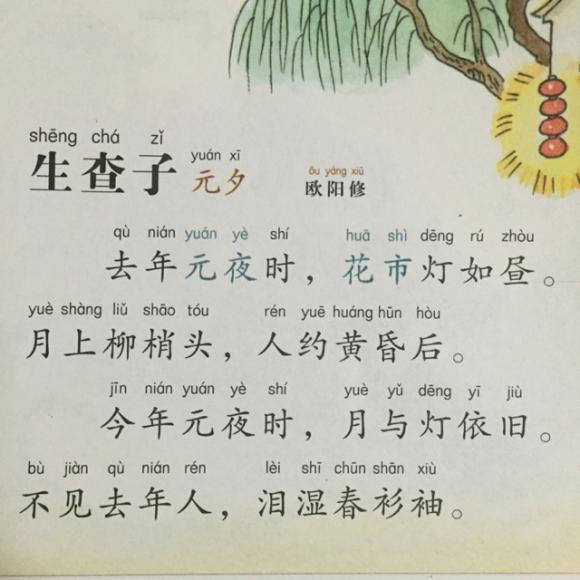 shēng chá zǐ yuán xī ōu yáng xiū
生查子 元夕 欧阳修
qù nián yuán yè shí huā shì dēng rú zhòu
去年元夜时，花市灯如昼。
yuè shàng liǔ shāo tóu rén yuē huáng hūn hòu
月上柳梢头，人约黄昏后。
jīn nián yuán yè shí yuè yǔ dēng yī jiù
今年元夜时，月与灯依旧。
bù jiàn qù nián rén lèi shī chūn shān xiù
不见去年人，泪湿春衫袖。